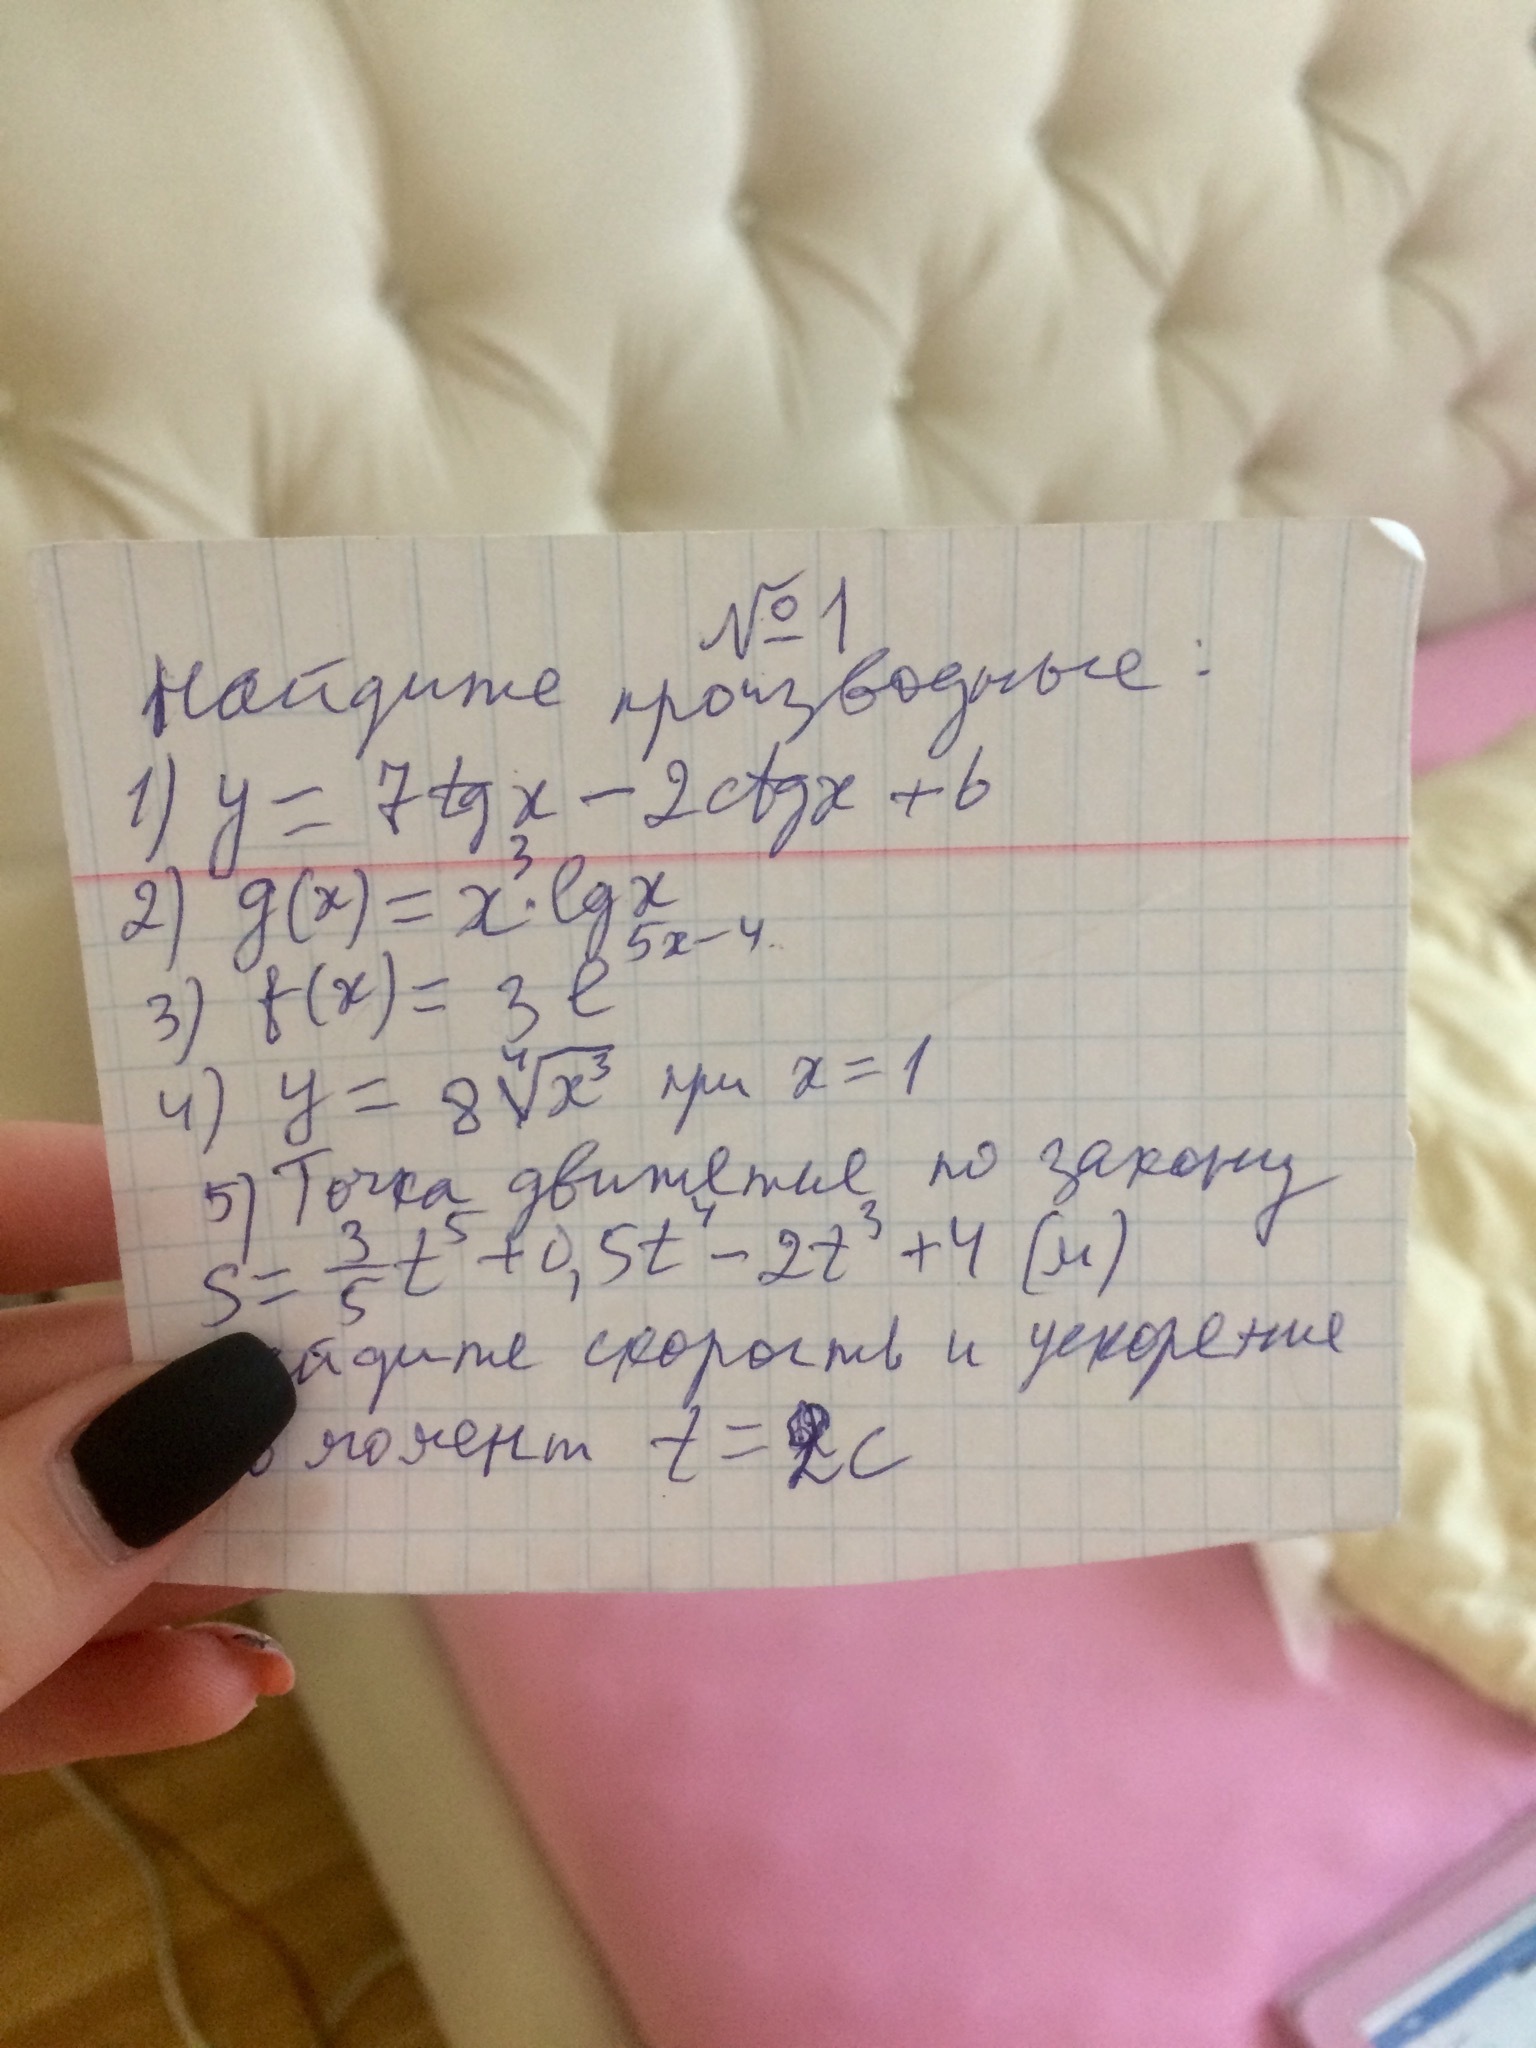 №1
Найдите производные:
1) y = 7tgx - 2ctgx + 6
2) g(x) = x³·lgx
3) f(x) = 3e^{5x-4}
4) y = 8∜x³ при x = 1
5) Точка движется по закону
S = 3/5 t⁵ + 0,5t⁴ - 2t³ + 4 (м)
йдите скорость и ускорение
в момент t = 2с